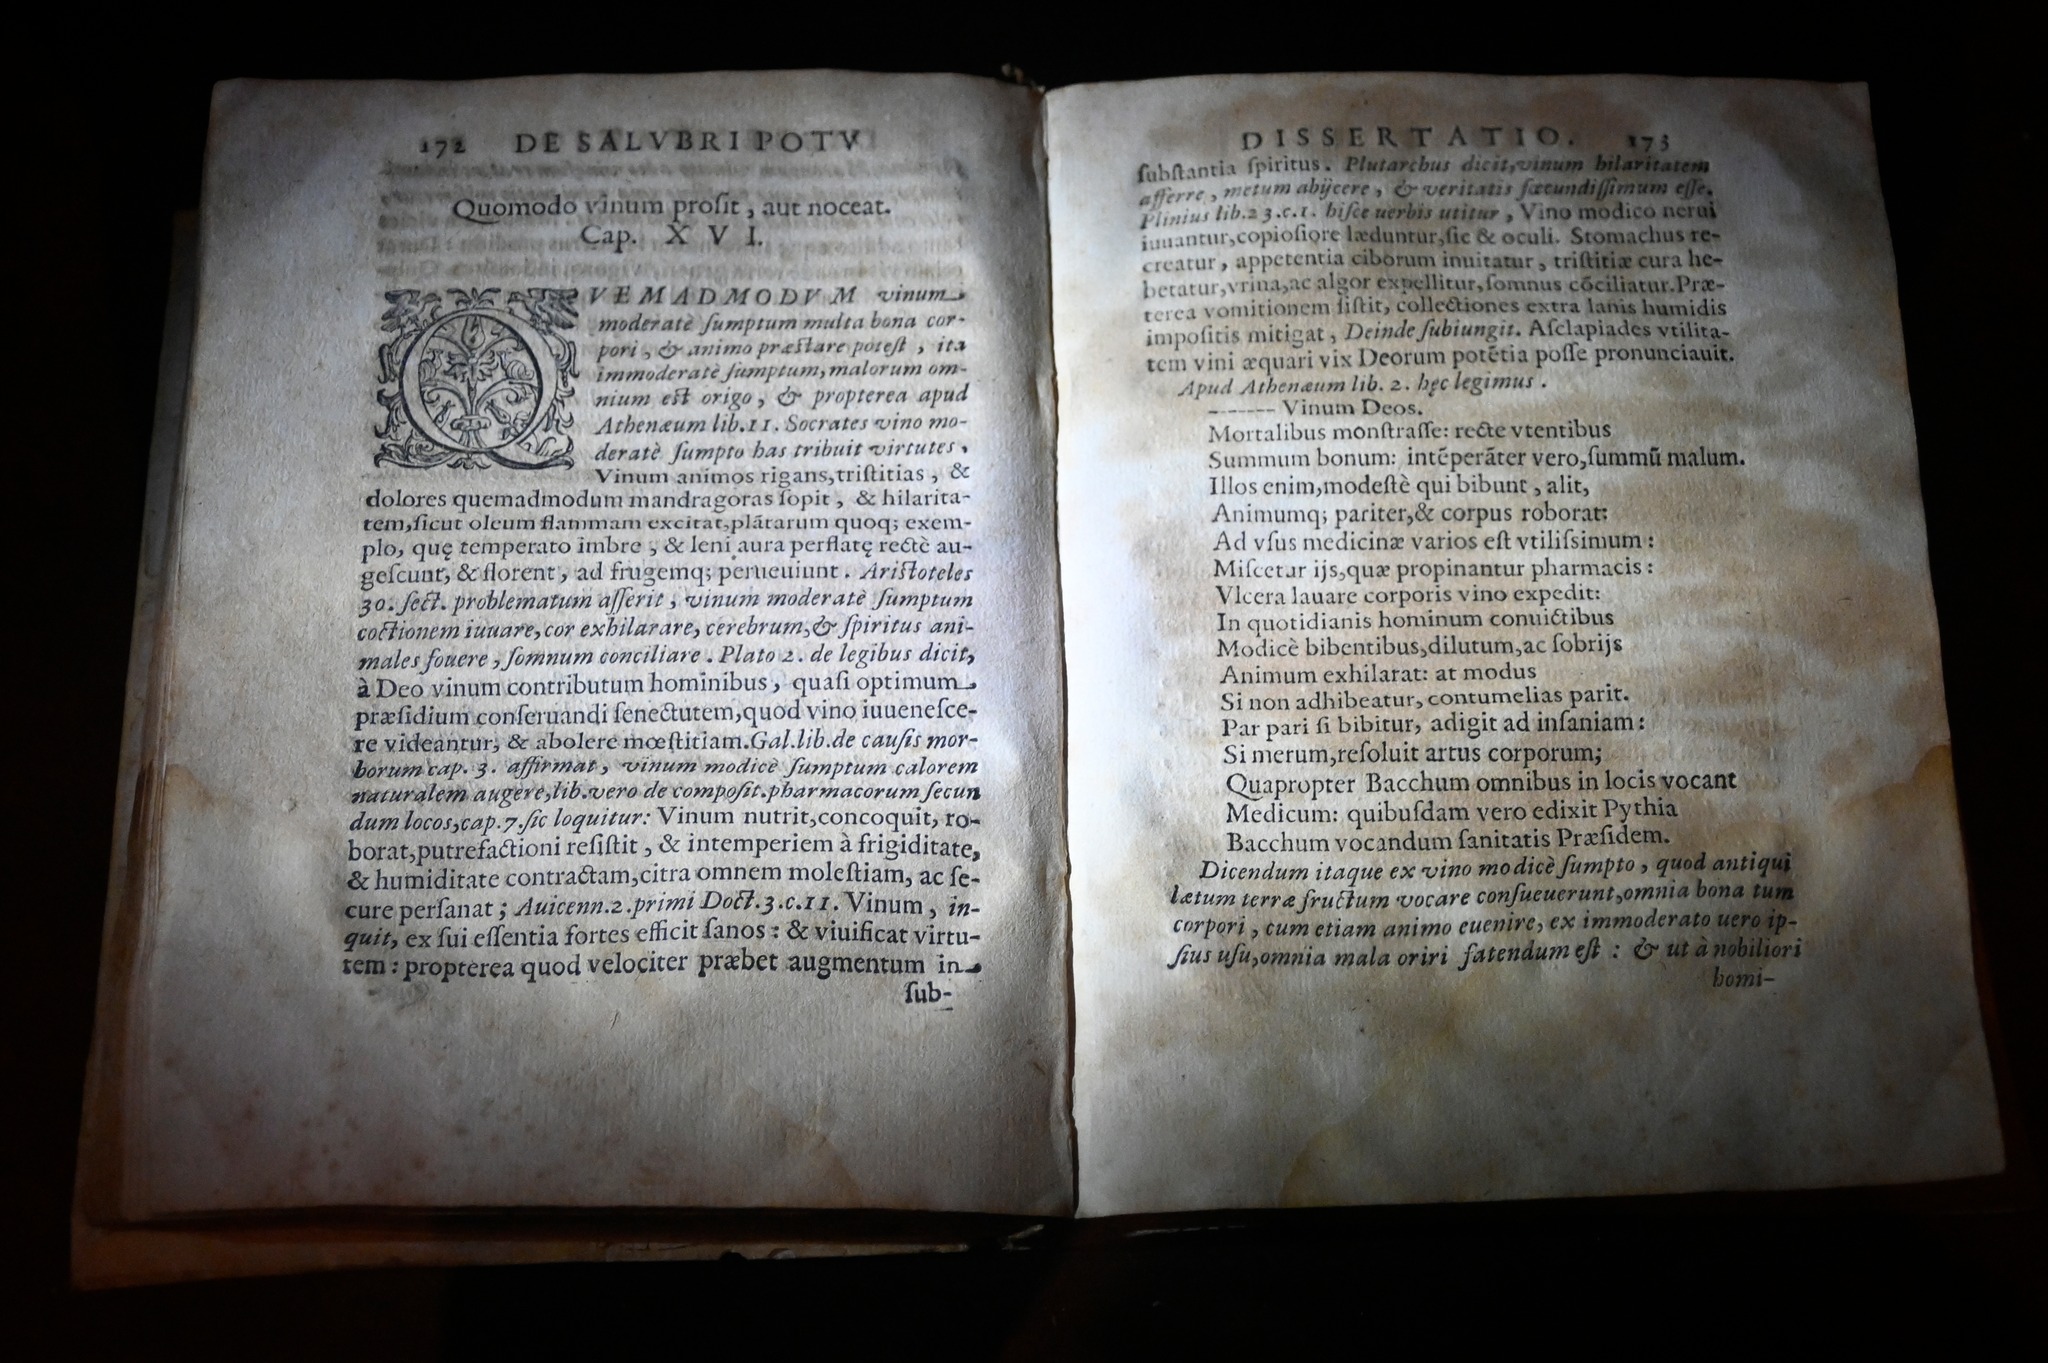 172 DE SALVBRI POTV
Quomodo vinum prosit, aut noceat.
Cap. XVI.
QVEMADMODVM vinum
moderatè ſumptum multa bona cor-
pori, & animo præſtare poteſt, ita
immoderatè ſumptum, malorum om-
nium eſt origo, & propterea apud
Athenæum lib. 11. Socrates vino mo-
deratè ſumpto has tribuit virtutes.
Vinum animos rigans, triſtitias, &
dolores quemadmodum mandragoras ſopit, & hilarita-
tem, ſicut oleum flammam excitat, plãtarum quoq; exem-
plo, quę temperato imbre, & leni aura perflatę rectè au-
geſcunt, & florent, ad frugemq; perueuiunt. Ariſtoteles
30. ſect. problematum aſſerit, vinum moderatè ſumptum
coctionem iuuare, cor exhilarare, cerebrum, & ſpiritus ani-
males fouere, ſomnum conciliare. Plato 2. de legibus dicit,
à Deo vinum contributum hominibus, quaſi optimum
præſidium conſeruandi ſenectutem, quod vino iuueneſce-
re videantur, & abolere mœſtitiam. Gal. lib. de cauſis mor-
borum cap. 3. affirmat, vinum modicè ſumptum calorem
naturalem augere, lib. vero de compoſit. pharmacorum ſecun
dum locos, cap. 7. ſic loquitur: Vinum nutrit, concoquit, ro-
borat, putrefactioni reſiſtit, & intemperiem à frigiditate,
& humiditate contractam, citra omnem moleſtiam, ac ſe-
cure perſanat; Auicenn. 2. primi Doct. 3. c. 11. Vinum, in-
quit, ex ſui eſſentia fortes efficit ſanos: & viuificat virtu-
tem: propterea quod velociter præbet augmentum in
ſub-
DISSERTATIO. 173
ſubſtantia ſpiritus. Plutarchus dicit, vinum hilaritatem
afferre, metum abijcere, & veritatis fœcundiſſimum eſſe.
Plinius lib. 23. c. 1. hiſce uerbis utitur, Vino modico nerui
iuuantur, copioſiore læduntur, ſic & oculi. Stomachus re-
creatur, appetentia ciborum inuitatur, triſtitiæ cura he-
betatur, vrina, ac algor expellitur, ſomnus cõciliatur. Præ-
terea vomitionem ſiſtit, collectiones extra lanis humidis
impoſitis mitigat, Deinde ſubiungit. Aſclapiades vtilita-
tem vini æquari vix Deorum potẽtia poſſe pronunciauit.
Apud Athenæum lib. 2. hęc legimus.
------- Vinum Deos.
Mortalibus monſtraſſe: recte vtentibus
Summum bonum: intẽperãter vero, ſummũ malum.
Illos enim, modeſtè qui bibunt, alit,
Animumq; pariter, & corpus roborat:
Ad vſus medicinæ varios eſt vtiliſſimum:
Miſcetur ijs, quæ propinantur pharmacis:
Vlcera lauare corporis vino expedit:
In quotidianis hominum conuictibus
Modicè bibentibus, dilutum, ac ſobrijs
Animum exhilarat: at modus
Si non adhibeatur, contumelias parit.
Par pari ſi bibitur, adigit ad inſaniam:
Si merum, reſoluit artus corporum;
Quapropter Bacchum omnibus in locis vocant
Medicum: quibuſdam vero edixit Pythia
Bacchum vocandum ſanitatis Præſidem.
Dicendum itaque ex vino modicè ſumpto, quod antiqui
lætum terræ fructum vocare conſueuerunt, omnia bona tum
corpori, cum etiam animo euenire, ex immoderato uero ip-
ſius uſu, omnia mala oriri fatendum eſt: & ut à nobiliori
homi-